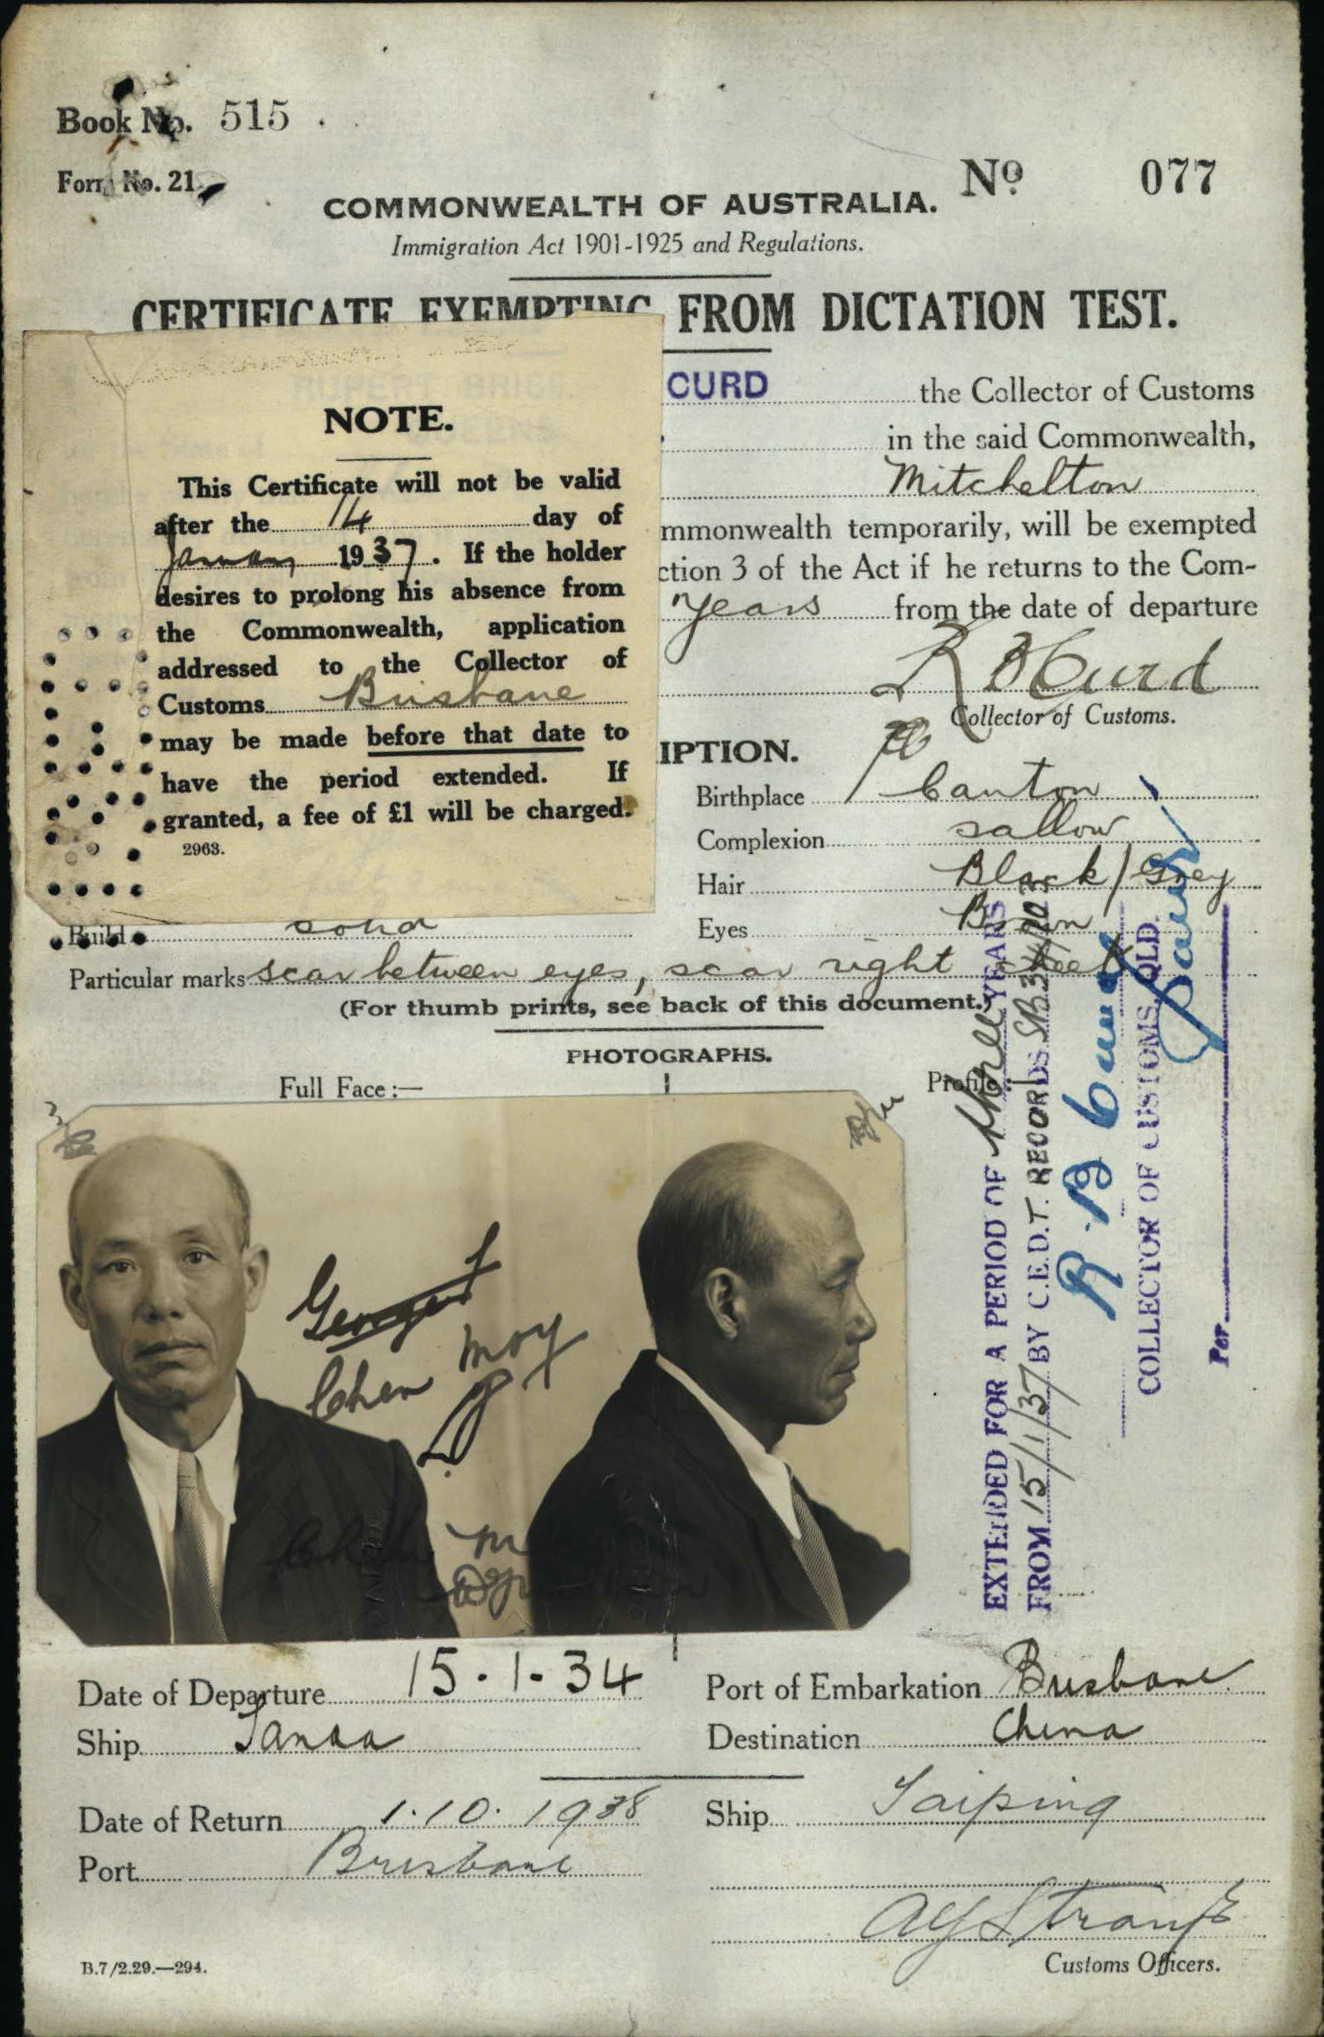 Book No. 515
Form No. 21.
No. 077
COMMONWEALTH OF AUSTRALIA.
Immigration Act 1901-1925 and Regulations.
CERTIFICATE EXEMPTING FROM DICTATION TEST.
CURD the Collector of Customs
in the said Commonwealth,
Mitchelton
mmonwealth temporarily, will be exempted
ction 3 of the Act if he returns to the Com-
years from the date of departure
R B Curd
Collector of Customs.
NOTE.
This Certificate will not be valid
after the 14 day of
January 1937. If the holder
desires to prolong his absence from
the Commonwealth, application
addressed to the Collector of
Customs Brisbane
may be made before that date to
have the period extended. If
granted, a fee of £1 will be charged.
2963.
IPTION.
Birthplace Canton
Complexion sallow
Hair Black/Grey
Build solid
Eyes Brown
Particular marks scar between eyes, scar right cheek
(For thumb prints, see back of this document.)
PHOTOGRAPHS.
Full Face:—
Profile
George
Chen Moy
EXTENDED FOR A PERIOD OF three YEARS
FROM 15/1/37 BY C.E.D.T. RECORDS
R B Curd
COLLECTOR OF CUSTOMS, QLD.
Per
Date of Departure 15.1.34
Port of Embarkation Brisbane
Ship Tanda
Destination China
Date of Return 1.10.1938
Ship Taiping
Port Brisbane
Customs Officers.
B.7/2.29.—294.